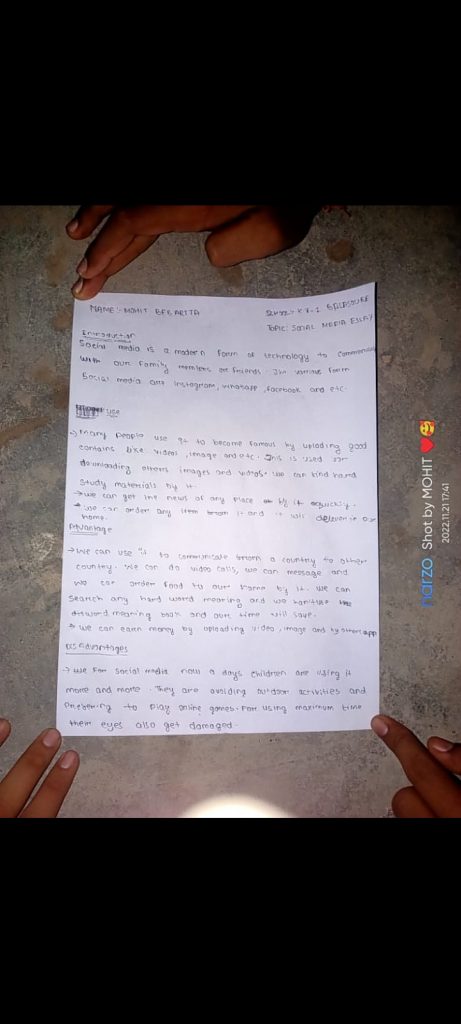 NAME:- MOHIT
SCHOOL:- K.V-1
TOPIC: SOCIAL MEDIA ESSAY
Entroduction
Social media is a modern form of technology to
with our family members or friends. In various form
Social media are Instagram, whatsapp, facebook and etc.
use
→ Many people use it to become famous by uploding good
contains like videos, image and etc. This is used for
downloading others images and videos. We can find hard
study materials by it.
→ we can get the news of any place by it quickly.
→ we can order any item from it and it will deliver in our
home.
Advantage
→ We can use it to communicate from a country to other
country. We can do video calls, we can message and
we can order food to our home by it. We can
search any hard word meaning and we
word meaning book and our time will save.
→ We can earn money by uploading video, image and by others app
Disadvantages
→ We For social media now a days children are using it
more and more. They are avoiding outdoor activities and
to play online games. For using maximum time
their eyes also get damaged.
narzo Shot by MOHIT ❤️🥰
2022.11.21 17:41